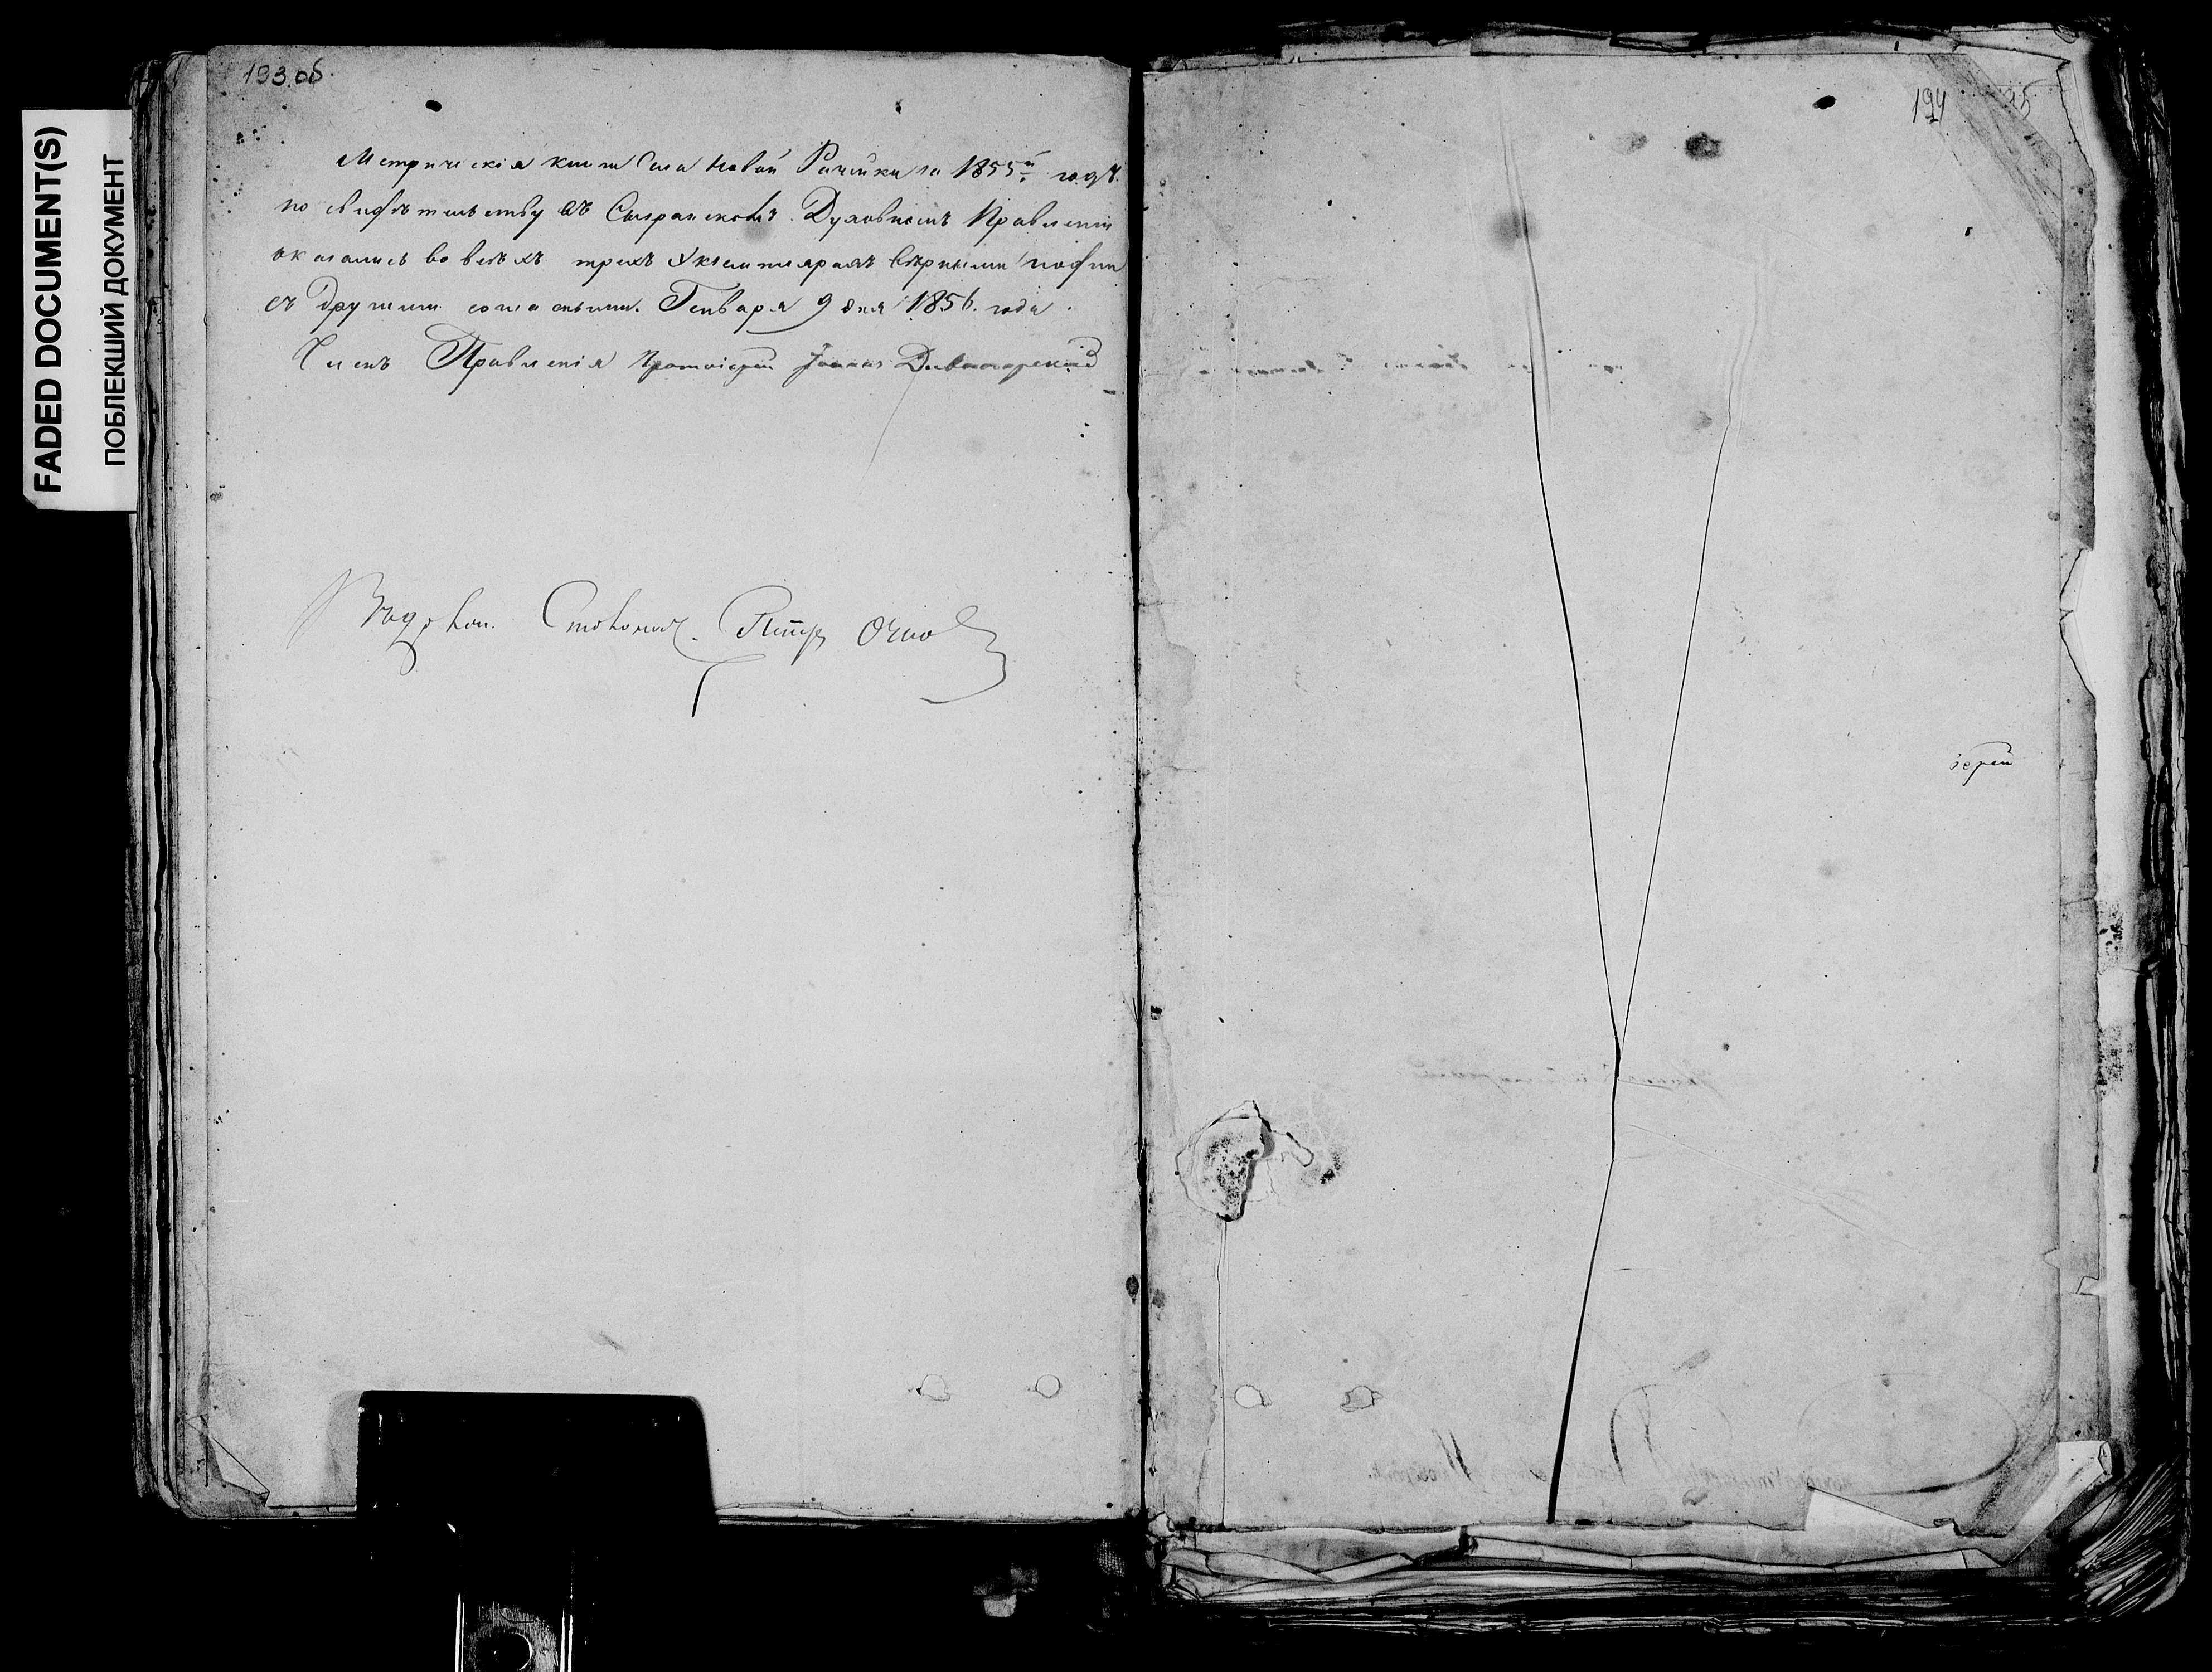 FADED DOCUMENT(S)
ПОБЛЕКШИЙ ДОКУМЕНТ
193.об.
Метрическія книги Села Новой Рачейки за 1855й годъ
по свидѣтельству въ Сызранскомъ Духовномъ Правленіи
оказались во всѣхъ трехъ Экземплярахъ вѣрными и одни
съ другими согласными. Генваря 9 дня 1856. года.
Членъ Правленія Протоіерей Іоаннъ
Петръ
194
іерей